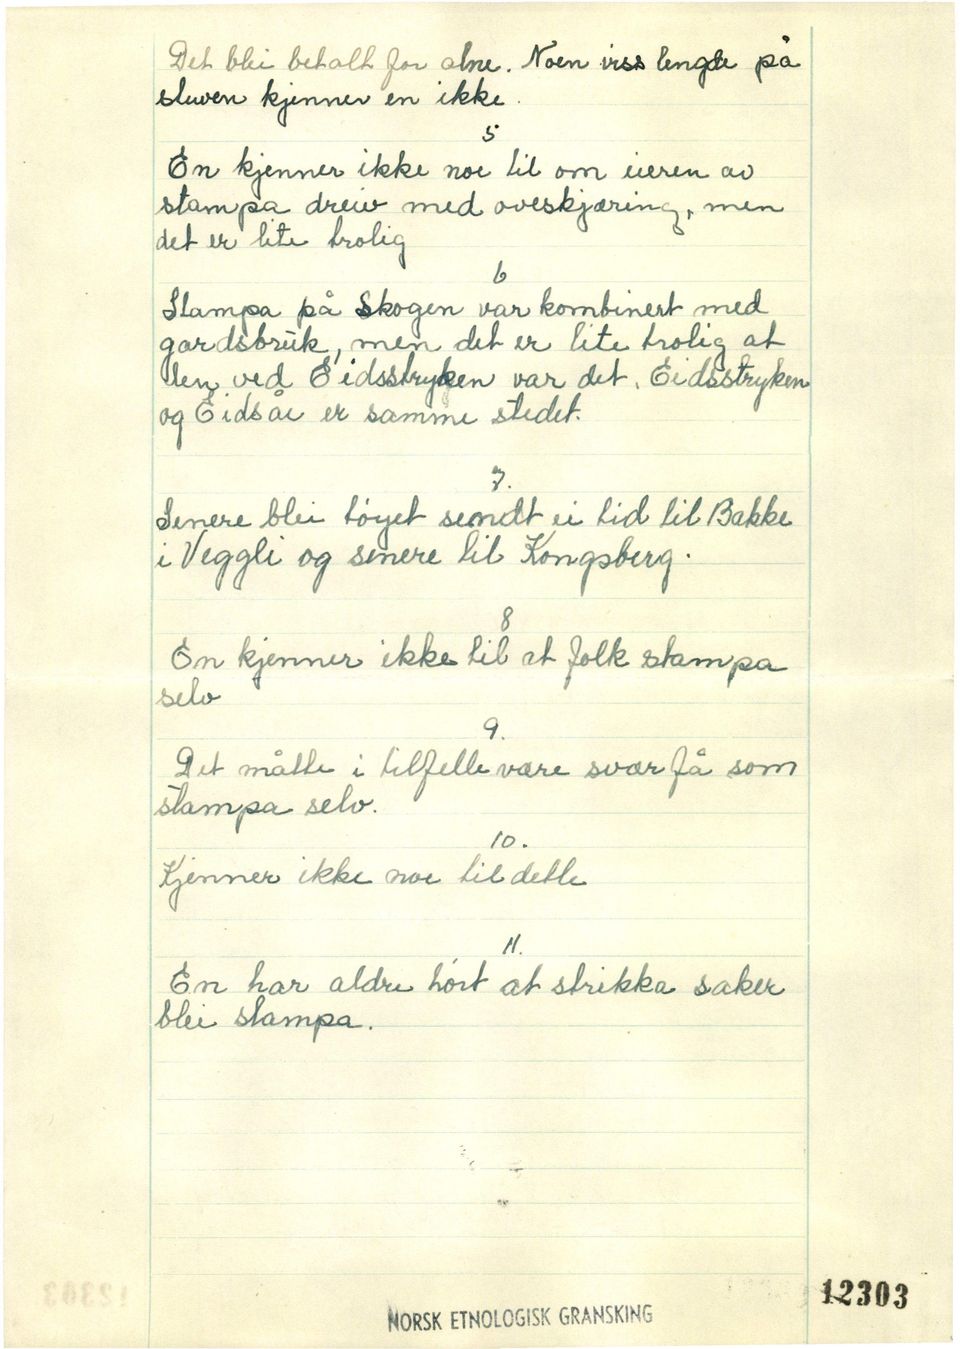 Det blei betalt for alne. Noen viss lengde på
stuven kjenner en ikke.
5
En kjenner ikke noe til om eieren av
stampa dreiv med oveskjæring, men
det er lite trolig
6
Stampa på Skogen var kombinert med
gardsbruk, men det er lite trolig at
den ved Eidsstryken var det. Eidsstryken
og Eidsåi er samme stedet.
7.
Senere blei tøyet sendt ei tid til Bakke
i Veggli og senere til Kongsberg.
8
En kjenner ikke til at folk stampa
selv
9.
Det måtte i tilfelle være svær få som
stampa selv.
10.
Kjenner ikke noe til dette
11.
En har aldri hørt at strikka saker
blei stampa.
12303
NORSK ETNOLOGISK GRANSKING